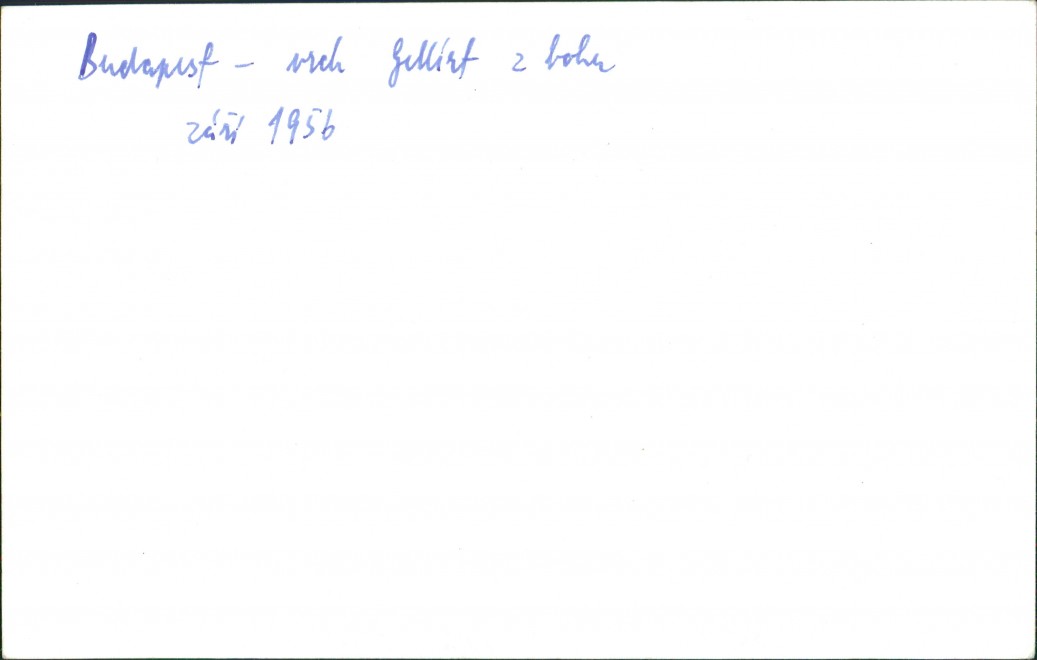 Budapest – vrch Gellért z boku
září 1956